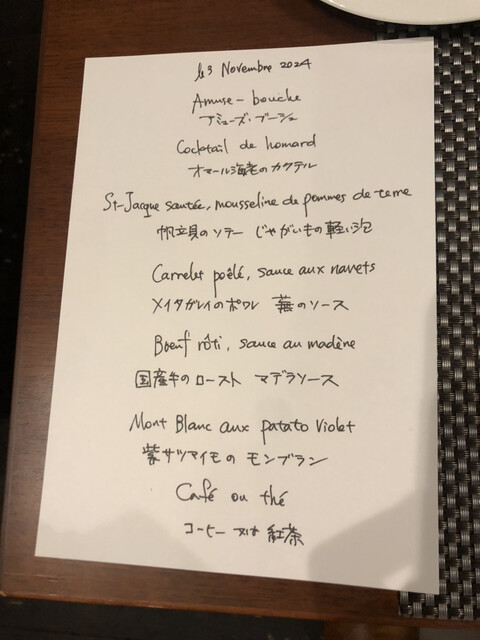 le 3 Novembre 2024
Amuse-bouche
アミューズ・ブーシュ
Cocktail de homard
オマール海老のカクテル
St-Jacque sautée, mousseline de pommes de terre
帆立貝のソテー じゃがいもの軽い泡
Carrelet poêlé, sauce aux navets
メイタガレイのポワレ 蕪のソース
Bœuf rôti, sauce au madène
国産牛のロースト マデラソース
Mont Blanc aux patato violet
紫サツマイモの モンブラン
Café ou thé
コーヒー 又は 紅茶